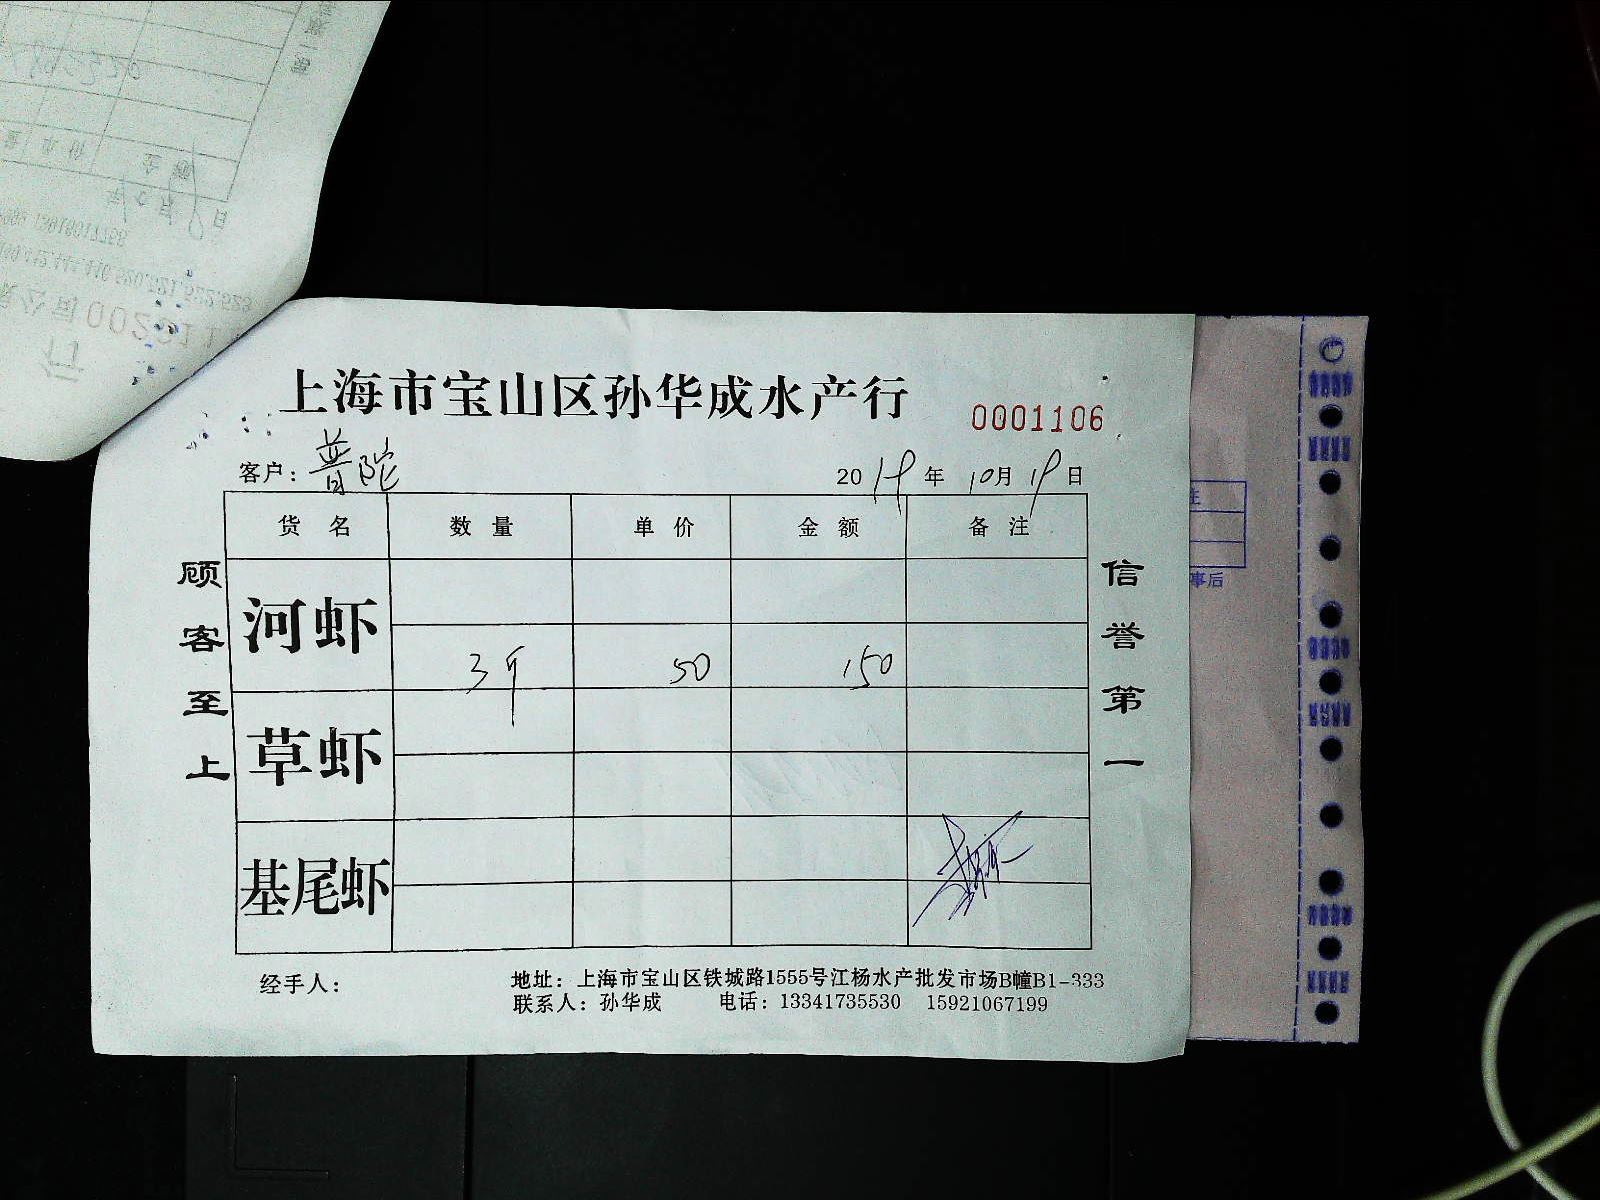 上海市宝山区孙华成水产行
0001106
客户：普陀
2019年 10月19日
货名 数量 单价 金额 备注
河虾
3斤 50 150
草虾
基尾虾
顾客至上
信誉第一
经手人：
地址：上海市宝山区铁城路1555号江杨水产批发市场B幢B1-333
联系人：孙华成 电话：13341735530 15921067199
事后